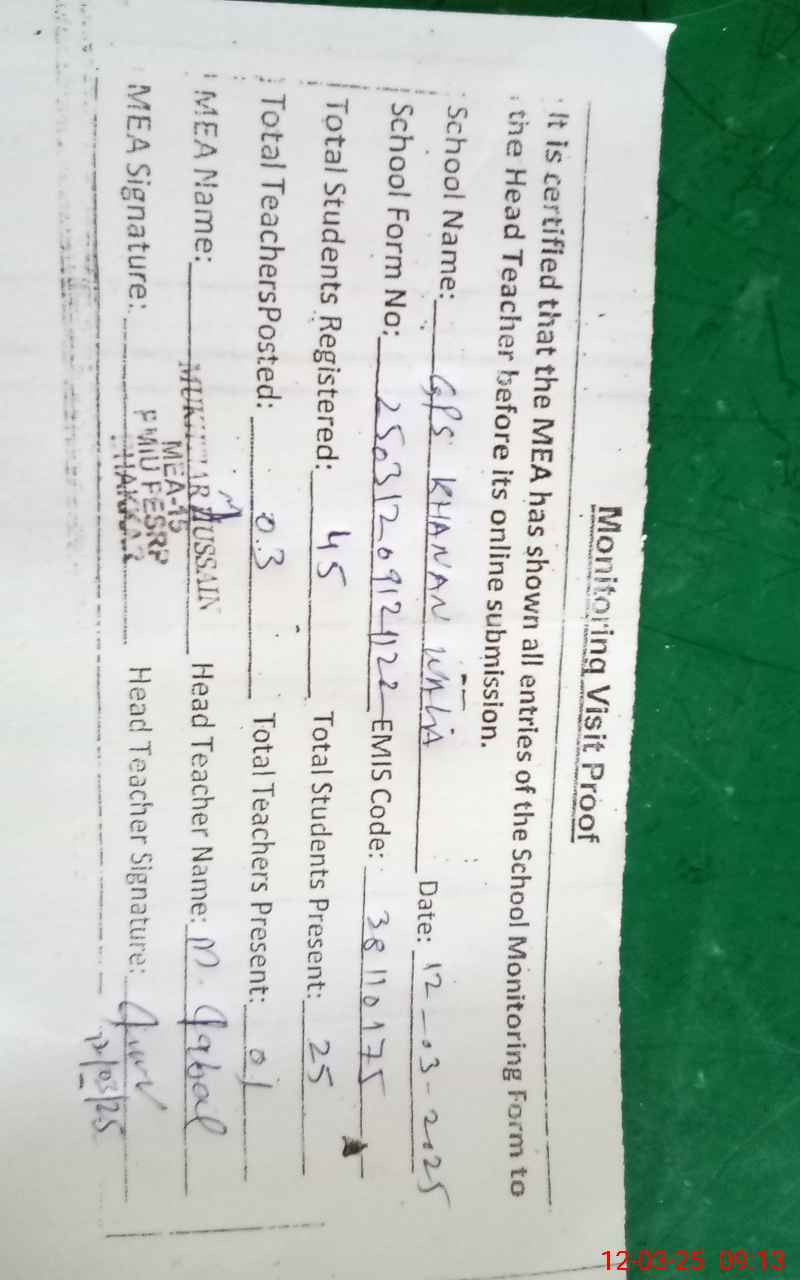 Monitoring Visit Proof
It is certified that the MEA has shown all entries of the School Monitoring Form to
the Head Teacher before its online submission.
School Name: GPS KHANAN WALA Date: 12-03-2025
School Form No: EMIS Code: 38110175
Total Students Registered: 45 Total Students Present: 25
Total TeachersPosted: 03 Total Teachers Present: 01
MEA Name: MUKHTAR HUSSAIN Head Teacher Name: M. Iqbal
MEA-15
MEA Signature: PMIU PESRP Head Teacher Signature:
12/03/25
12-03-25 09:13